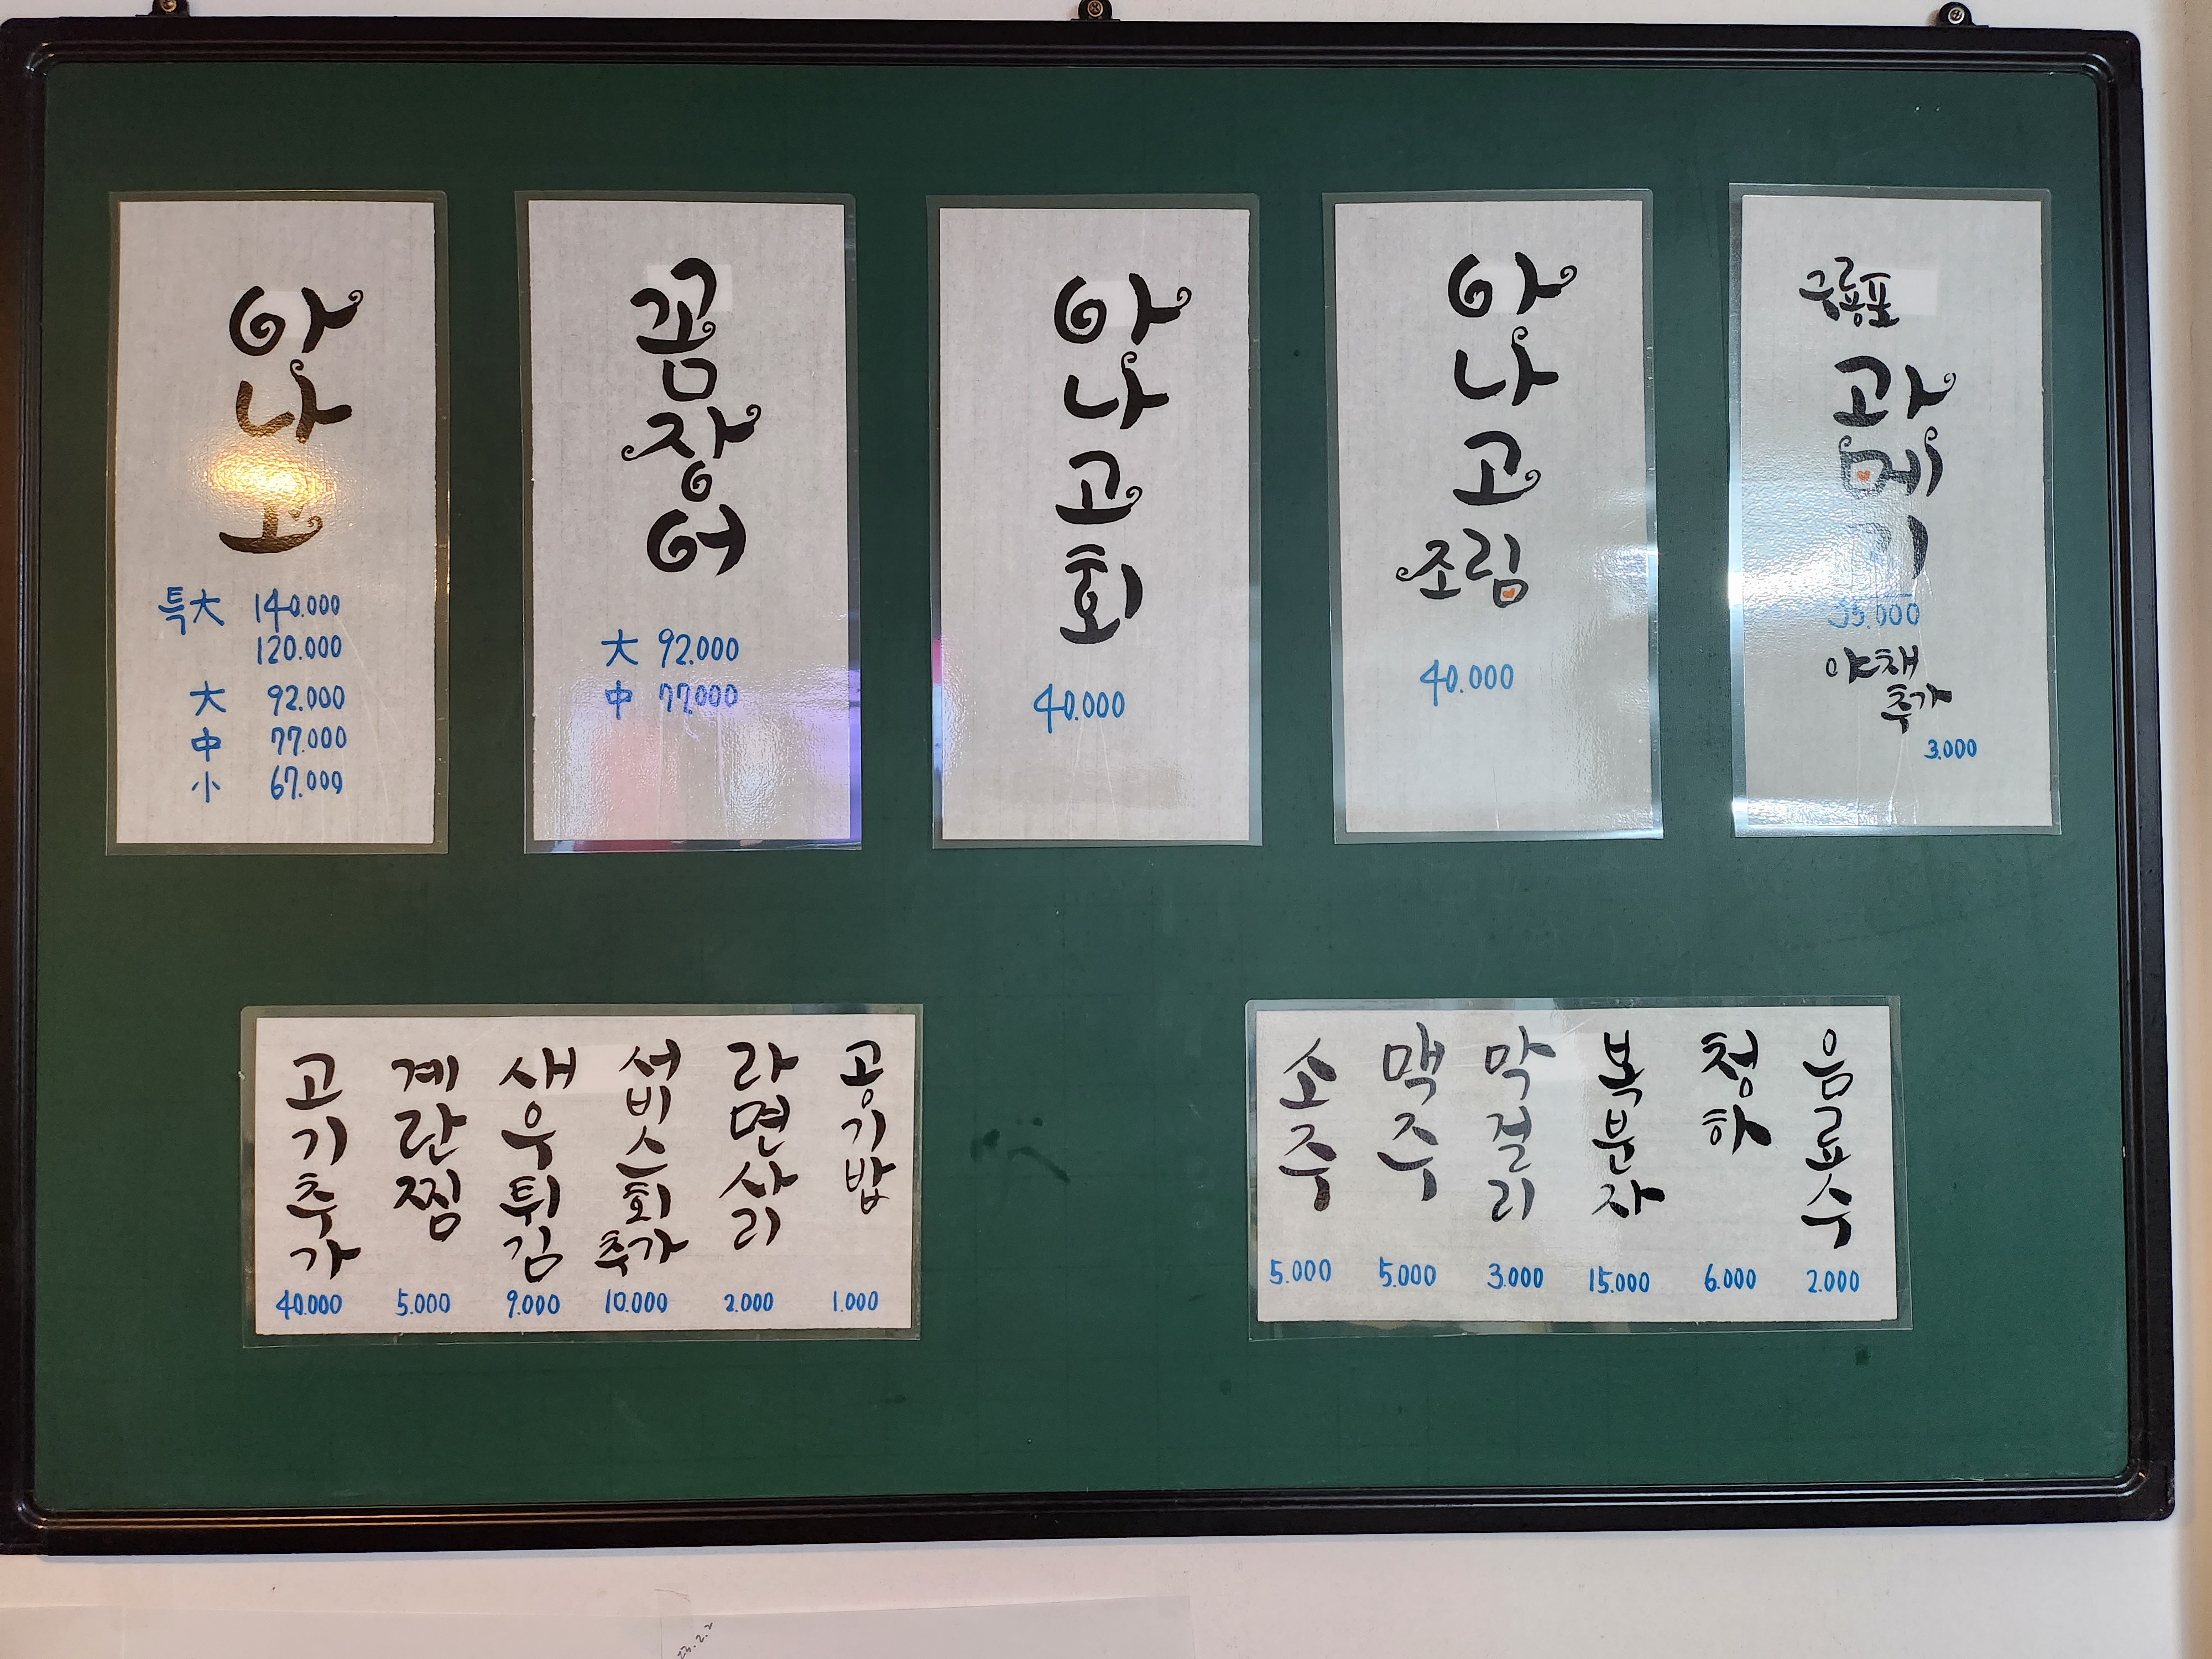 아나고
특大 140.000
120.000
大 92.000
中 77.000
小 67.000
꼼장어
大 92.000
中 77.000
아나고회
40.000
아나고
조림
40.000
구룡포
과메기
35.000
야채
추가
3.000
고기추가 40.000
계란찜 5.000
새우튀김 9.000
서비스회추가 10.000
라면사리 2.000
공기밥 1.000
소주 5.000
맥주 5.000
막걸리 3.000
복분자 15.000
청하 6.000
음료수 2.000